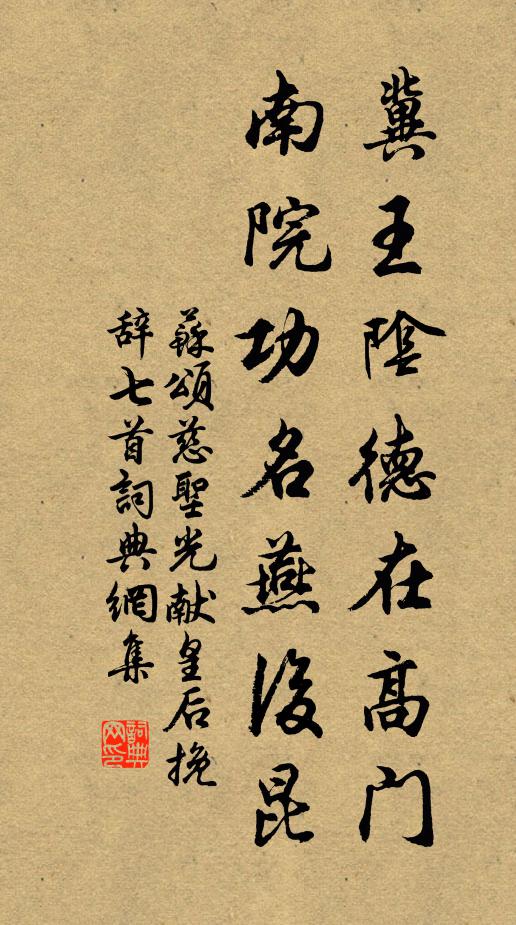 冀王陰德在高門
南院功名燕後昆
蘇頌慈聖光献皇后挽
辞七首詞典網集
詞典網印